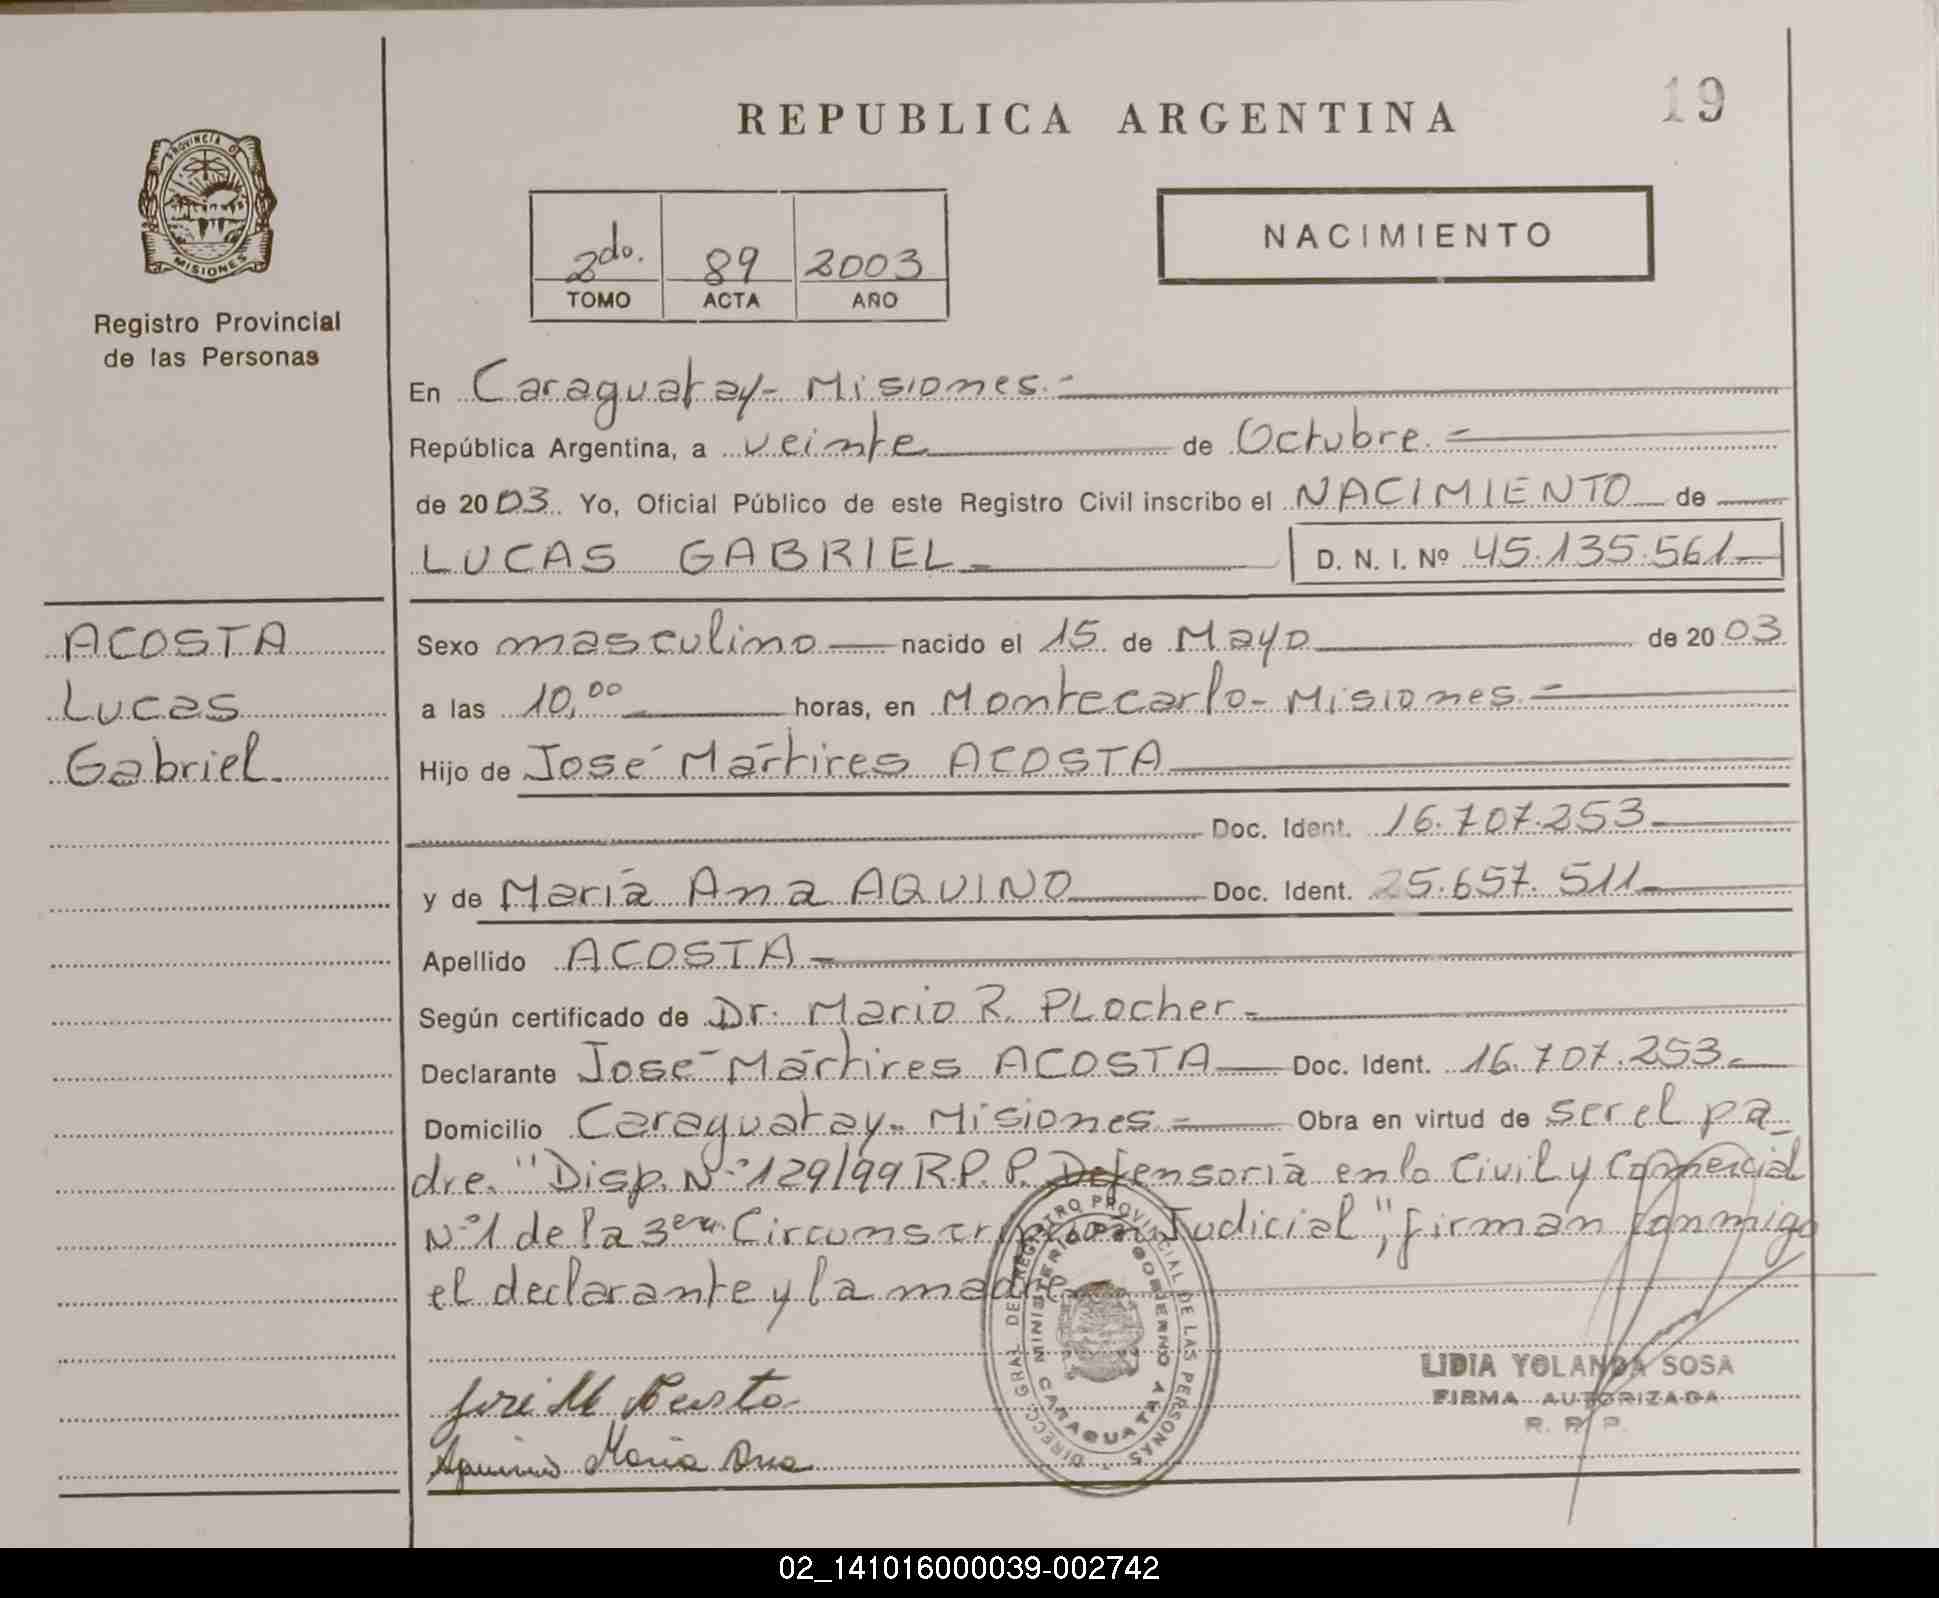 REPUBLICA ARGENTINA
19
PROVINCIA DE
MISIONES
Registro Provincial
de las Personas
2do. 89 2003
TOMO ACTA AÑO
NACIMIENTO
En Caraguatay- Misiones.-
República Argentina, a veinte de Octubre.-
de 2003. Yo, Oficial Público de este Registro Civil inscribo el NACIMIENTO de
LUCAS GABRIEL.- D. N. I. Nº 45.135.561-
ACOSTA
Lucas
Gabriel.
Sexo masculino nacido el 15 de Mayo de 2003
a las 10,00 horas, en Montecarlo- Misiones.-
Hijo de José Mártires ACOSTA
Doc. Ident. 16.707.253
y de María Ana AQUINO Doc. Ident. 25.657.511
Apellido ACOSTA-
Según certificado de Dr. Mario R. PLocher-
Declarante José Mártires ACOSTA Doc. Ident. 16.707.253.-
Domicilio Caraguatay- Misiones.- Obra en virtud de ser el pa_
dre. "Disp. Nº 129/99 R.P.P. Defensoría en lo Civil y Comercial
Nº1 de la 3era. Circunscripción Judicial", firman conmigo
el declarante y la madre
DIRECC. GRAL. DE REGISTRO PROVINCIAL DE LAS PERSONAS
MINISTERIO DE GOBIERNO
CARAGUATAY
José M Acosta
Aquino María Ana
LIDIA YOLANDA SOSA
FIRMA AUTORIZADA
R. P. P.
02_141016000039-002742